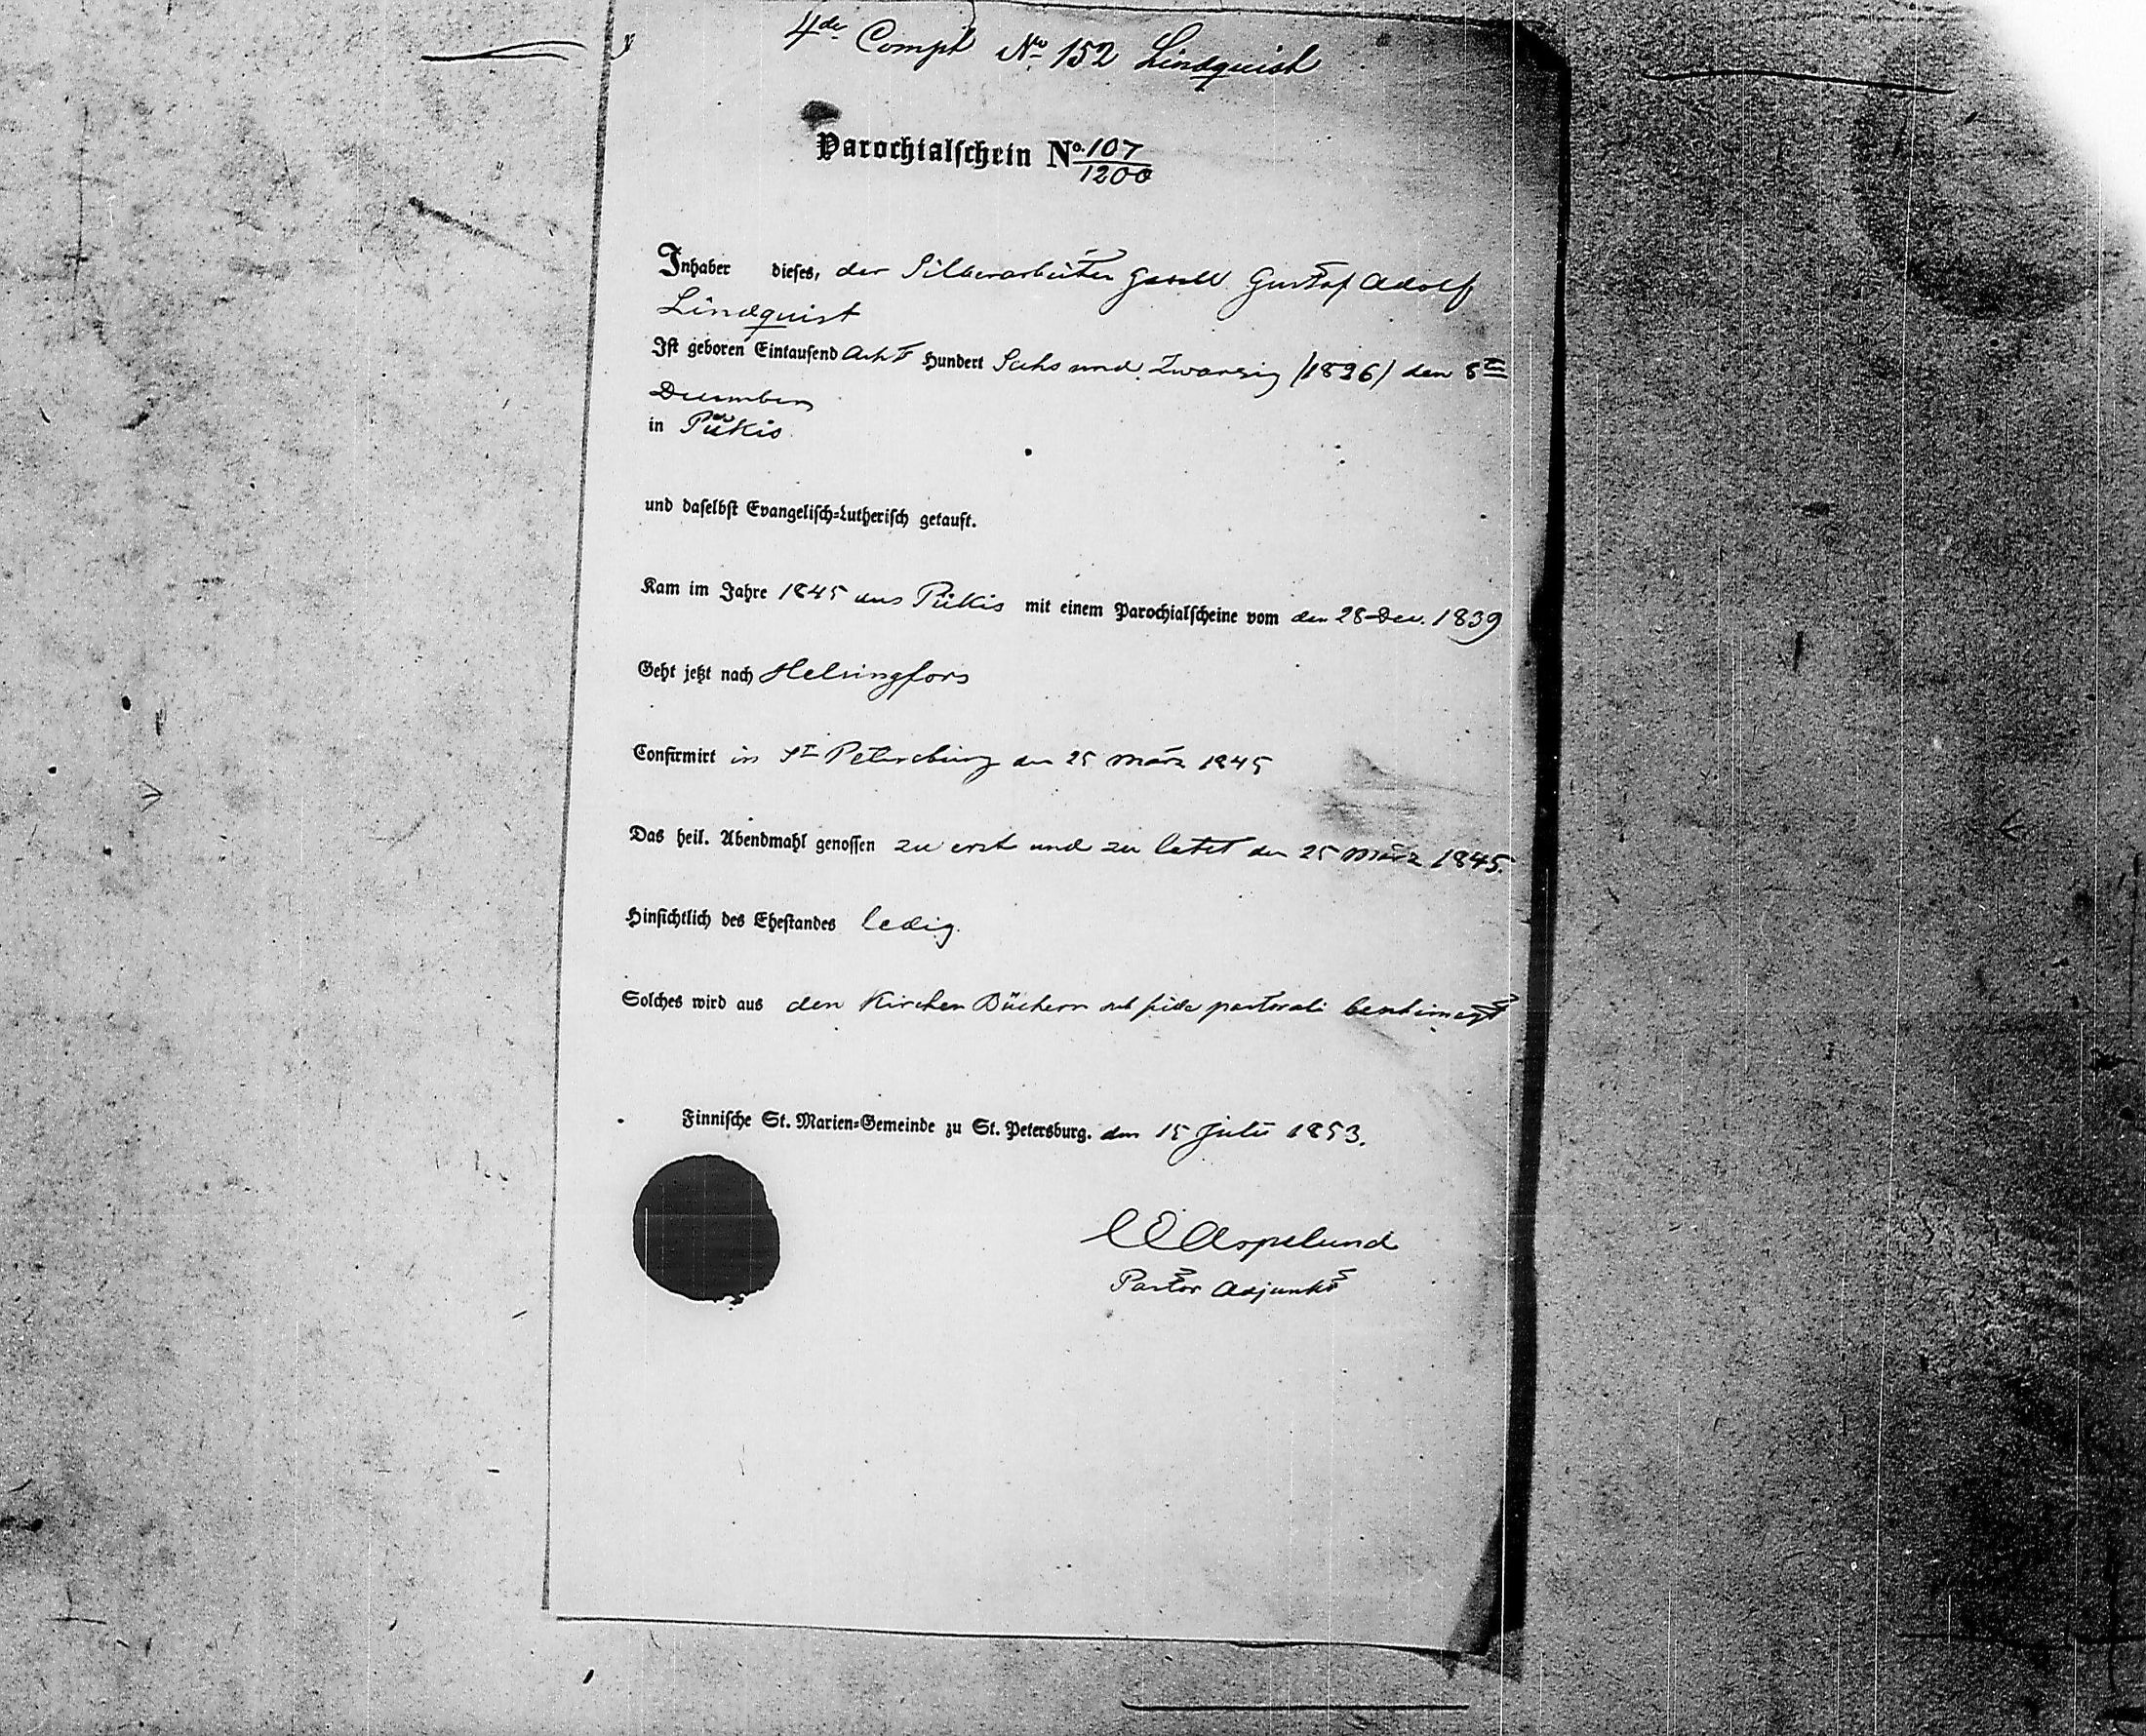 4de Comp. No 152 Lindquist
Parochialschein No. 107/1200
Inhaber dieses, der Silberarbeiter Gesell Gustaf Adolf
Lindquist
Ist geboren Eintausend Acht Hundert Sechs und Zwanzig /1826/ den 8ten
December
in Pükis
und daselbst Evangelisch-Lutherisch getauft.
Kam im Jahre 1845 aus Pükis mit einem Parochialscheine vom den 28 Dec. 1839
Geht jetzt nach Helsingfors
Confirmirt in St Petersburg den 25 März 1845
Das heil. Abendmahl genossen zu erst und zu letzt den 25 März 1845.
Hinsichtlich des Ehestandes ledig.
Solches wird aus den Kirchen Büchern sub fide pastorali bescheinigt
Finnische St. Marien-Gemeinde zu St. Petersburg. den 15 Juli 1853.
C E Aspelund
Pastor Adjunkt